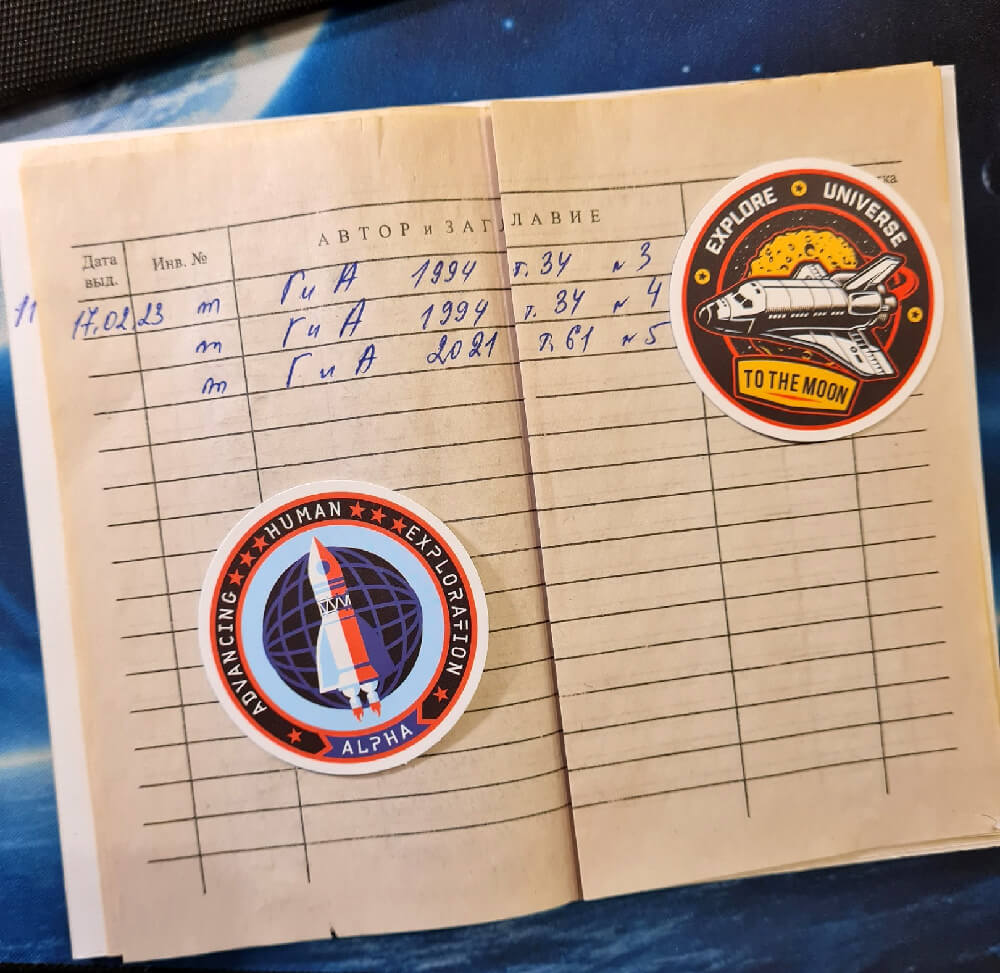 АВТОР и ЗАГЛАВИЕ
Дата выд.
Инв. №
11 17.02.23 т Г и А 1994 т. 34 № 3
т Г и А 1994 т. 34 № 4
т Г и А 2021 т. 61 № 5
EXPLORE UNIVERSE
TO THE MOON
ADVANCING HUMAN EXPLORATION
ALPHA